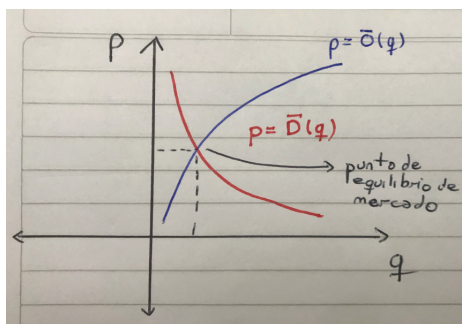 P
p = Ō(q)
p = D̄(q)
punto de
equilibrio de
mercado
q